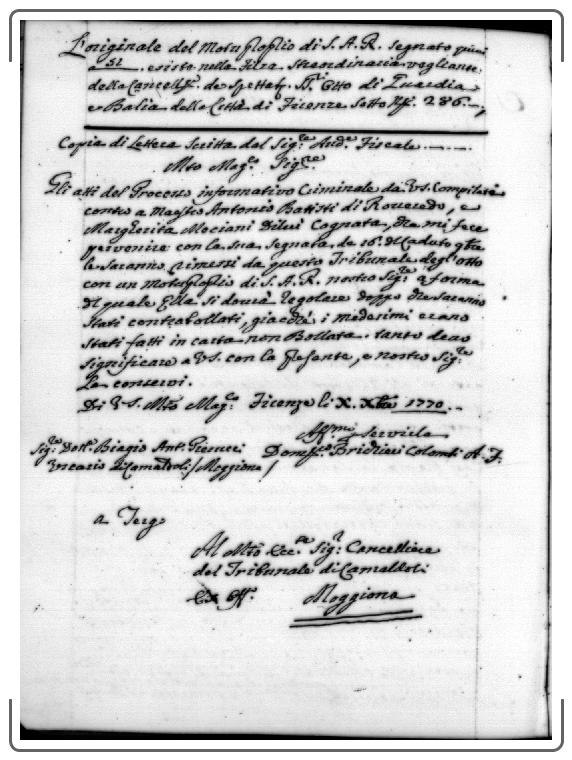 L'originale del Motuproprio di S. A. R. segnato
a 51. esiste nella filza Straordinaria vegliante
della Cancell.ª de Spettab. SS.ri Otto di Guardia
e Balia della Città di Firenze Sotto N.º 286. —
Copia di Lettera Scritta dal Sig.re Aud.re Fiscale
Mto Mag.co Sig.re
Gli atti del Processo informativo Criminale da VS. Compilato
contro a Maestro Antonio Batisti di Roveredo, e
Margherita Mociani Di lui Cognata, che mi fece
pervenire con la sua segnata de 16. del Caduto
le saranno rimessi da questo Tribunale degl'Otto
con un Motuproprio di S. A. R. nostro Sig.re a forma
del quale Ella si dovrà regolare doppo che saranno
stati contrabollati, giacchè i medesimi erano
stati fatti in carta non Bollata. tanto devo
significare a VS. con la presente, e nostro Sig.re
La conservi.
Di VS. Mto Mag.ca Firenze li X. Xbre 1770.
Servidore
Sig.re Dott.e Biagio Ant.º Pierucci Dom.co Brichieri Colombi A. F.
Vicario di Camaldoli / Moggiona /
a Tergo
Al Mto Ecc.te Sig.r Cancelliere
del Tribunale di Camaldoli
Ex Off.º Moggiona